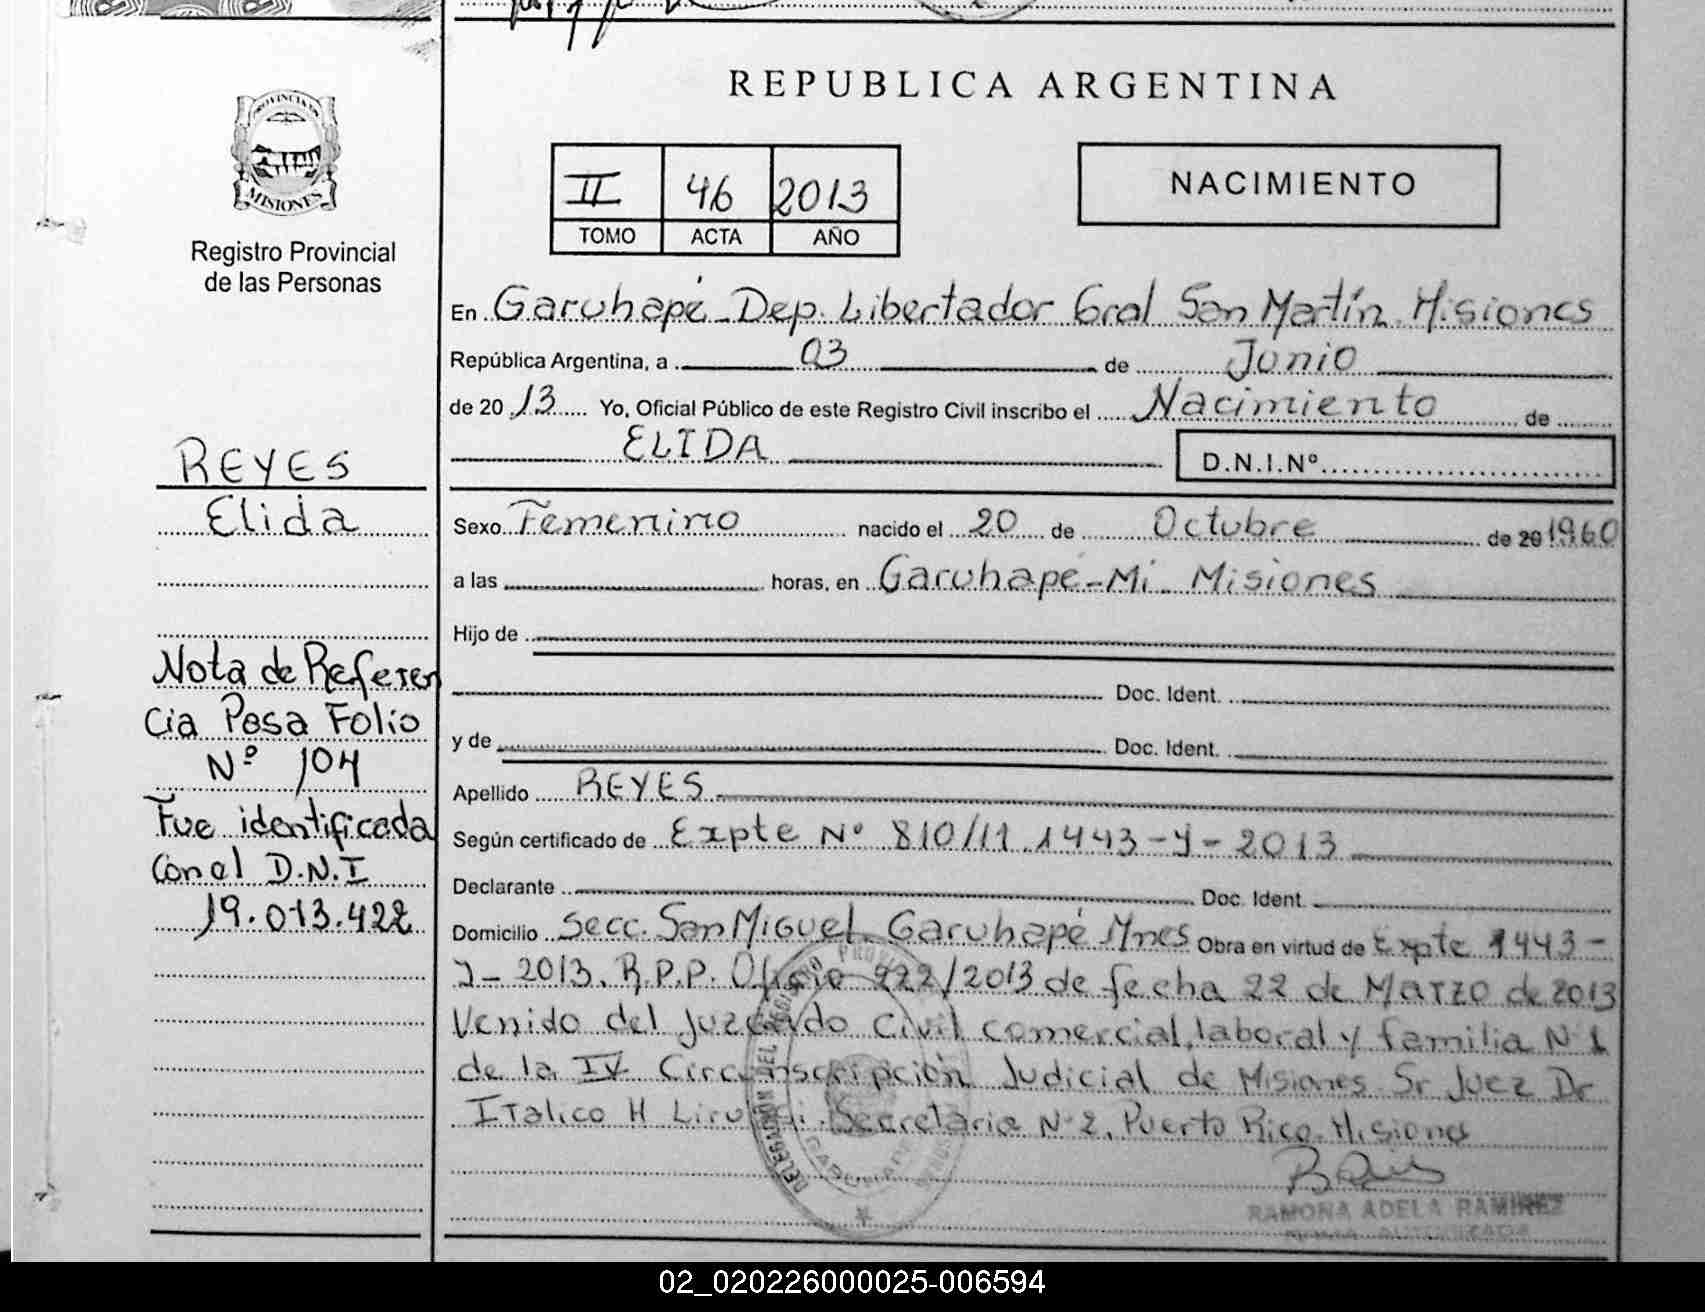 REPUBLICA ARGENTINA
PROVINCIA
MISIONES
Registro Provincial
de las Personas
II 46 2013
TOMO ACTA AÑO
NACIMIENTO
En Garuhapé Dep. Libertador Gral San Martín Misiones
República Argentina, a 03 de Junio
de 2013 Yo, Oficial Público de este Registro Civil inscribo el Nacimiento de
ELIDA D.N.I.Nº
REYES
Elida
Sexo Femenino nacido el 20 de Octubre de 20 1960
a las horas, en Garuhapé-Mi Misiones
Hijo de
Doc. Ident.
y de Doc. Ident.
Apellido REYES
Según certificado de Expte Nº 810/11 1443-Y-2013
Declarante Doc. Ident.
Domicilio Secc. San Miguel Garuhapé Mnes Obra en virtud de Expte 1443-
Y-2013. R.P.P. Oficio 222/2013 de fecha 22 de Marzo de 2013
Venido del Juzgado Civil comercial, laboral y familia N 1
de la IV Circunscripción Judicial de Misiones Sr Juez Dr
Italico H Secretaria Nº 2, Puerto Rico Misiones
Nota de Referen
cia Pasa Folio
Nº 104
Fue identificada
Con el D.N.I
19.013.422
DELEGACIÓN DEL REGISTRO
GARUHAPE
RAMONA ADELA RAMIREZ
AUTORIZADA
02_020226000025-006594